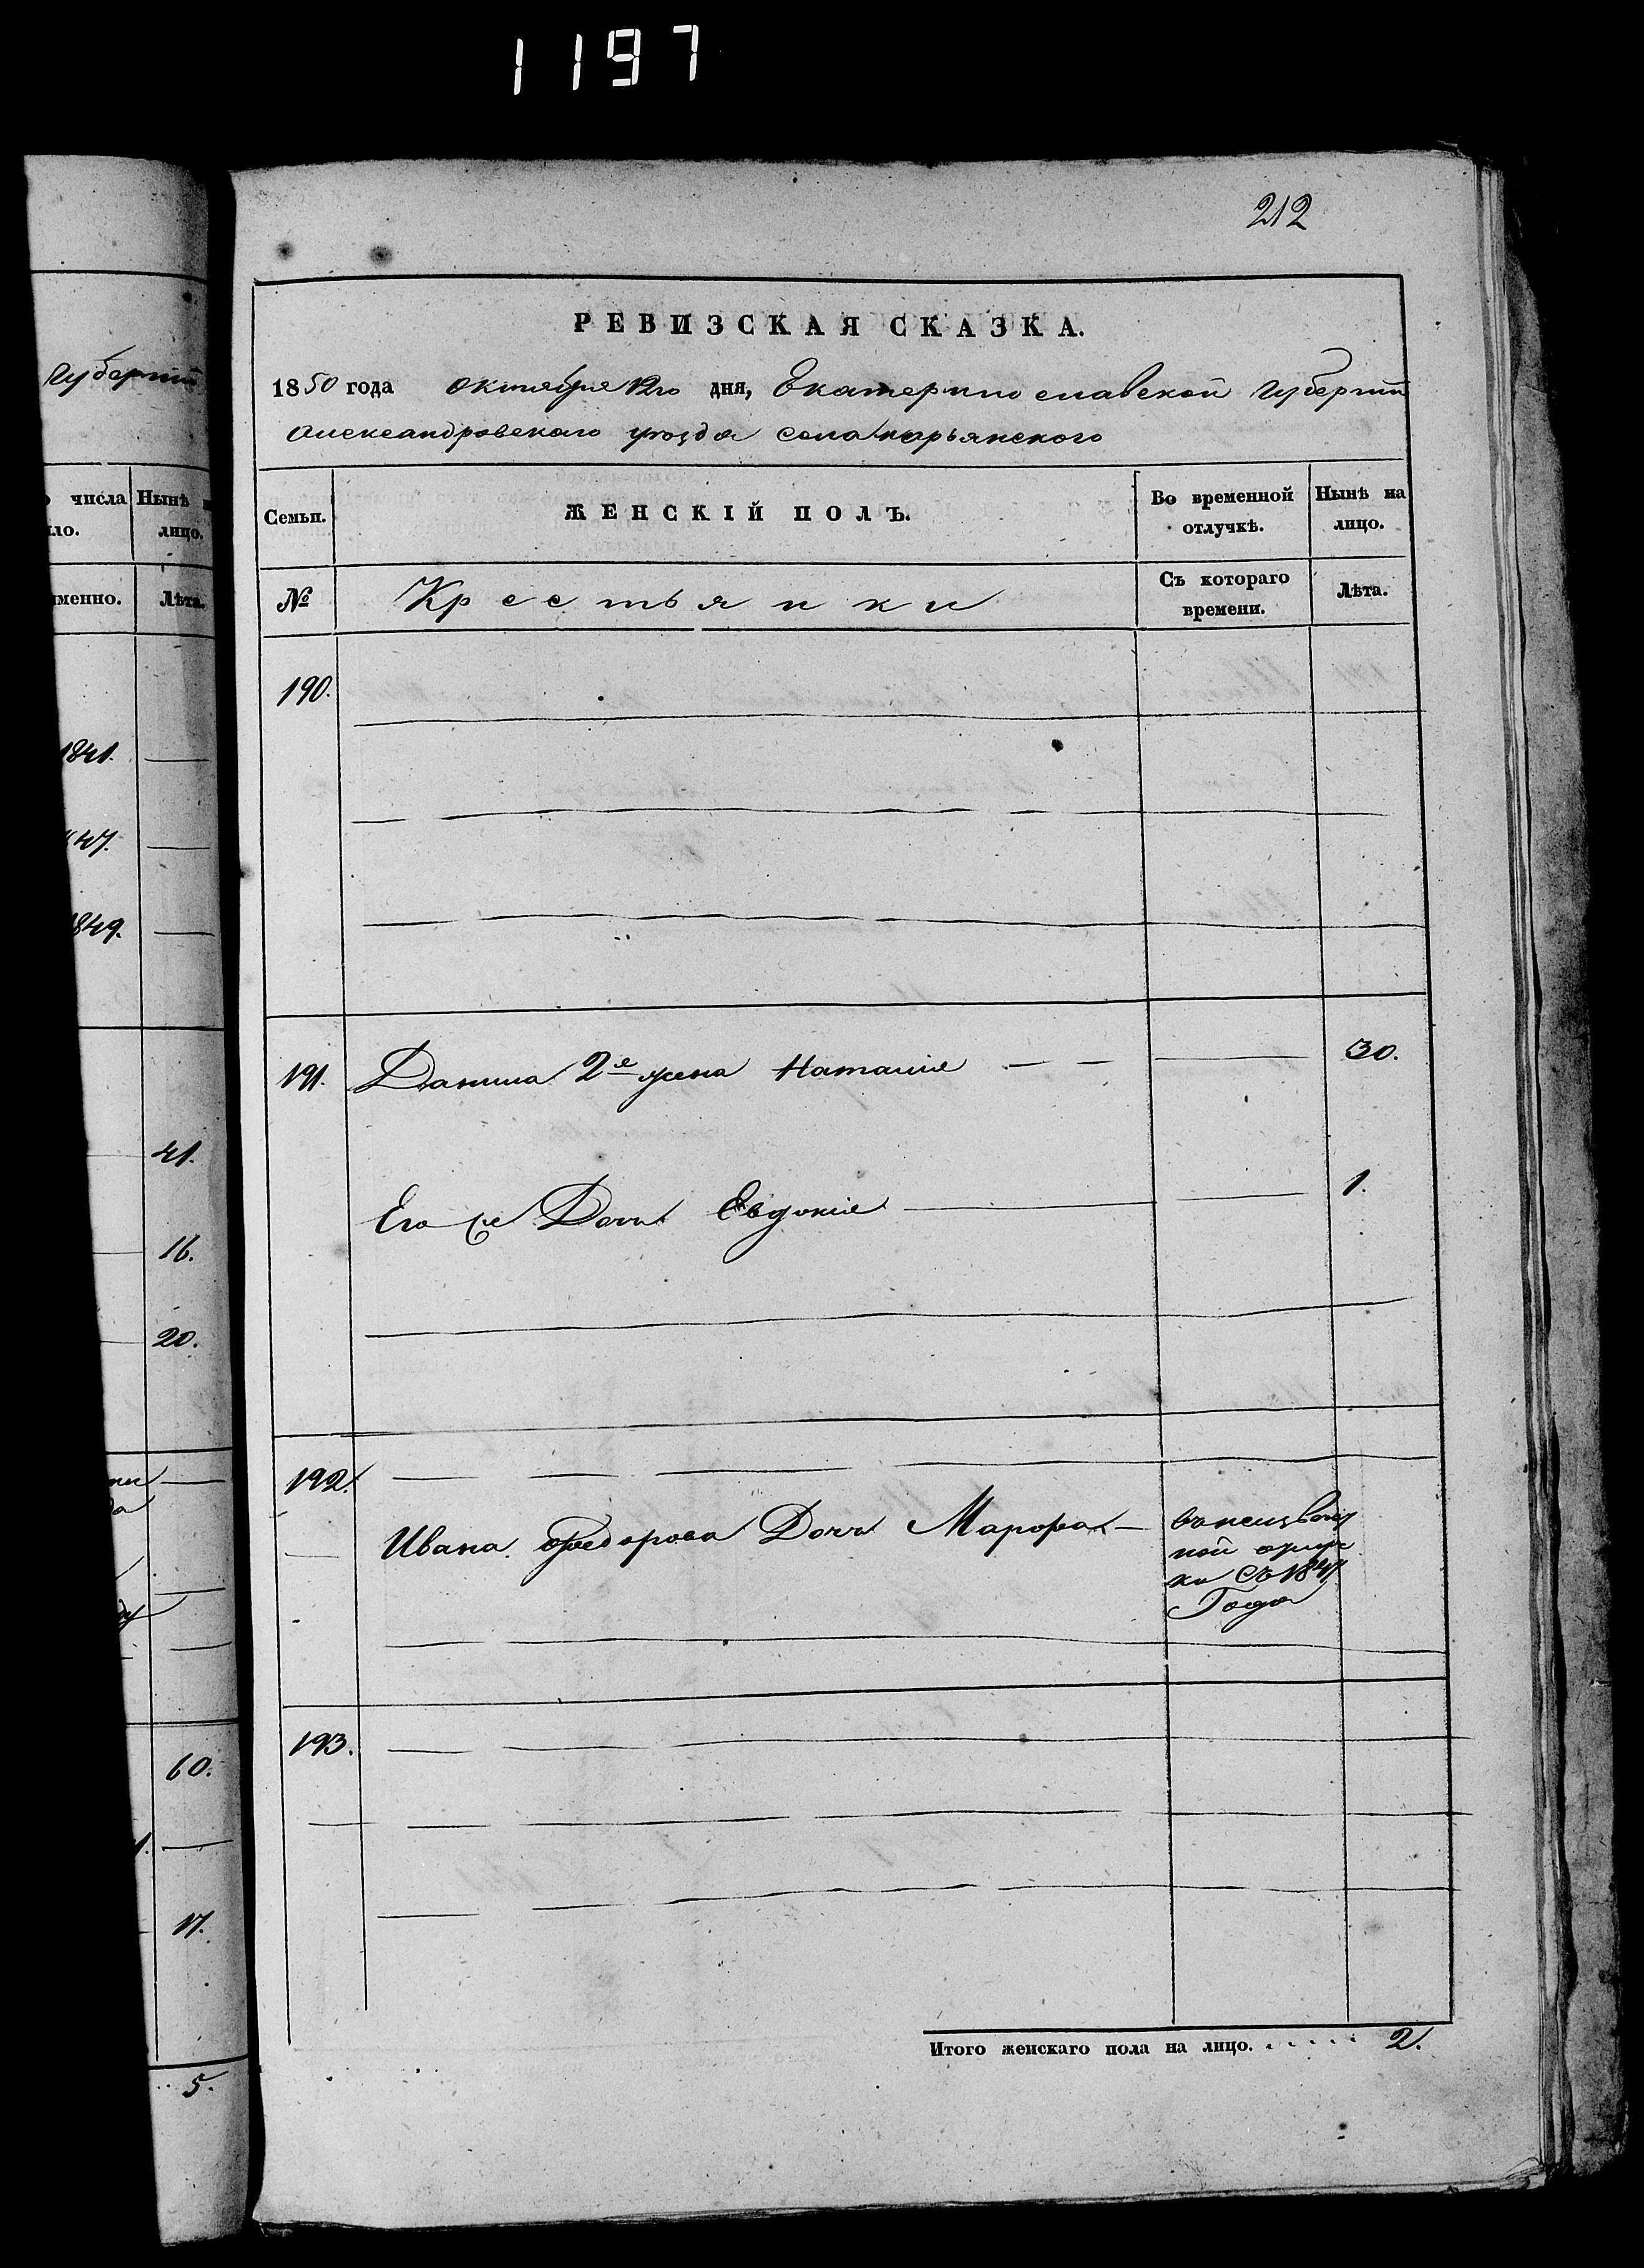 1197
212
губерніи
числа Нынѣ
ло. лицо.
именно. Лѣта.
1841.
47.
1849.
41.
16.
20.
60.
17.
5.
РЕВИЗСКАЯ СКАЗКА.
1850 года октября 12го дня, Екатеринославской губерніи
Александровскаго уѣзда села
Семьи. ЖЕНСКІЙ ПОЛЪ. Во временной отлучкѣ. Нынѣ на лицо.
№ Крестьянки Съ котораго времени. Лѣта.
190.
191. Данила 2я жена Наталія 30.
Его же Дочь Евдокія 1.
192.
Ивана Федорова Дочь Марфа
ки съ 1847
Года
193.
Итого женскаго пола на лицо. . . . . . 2.